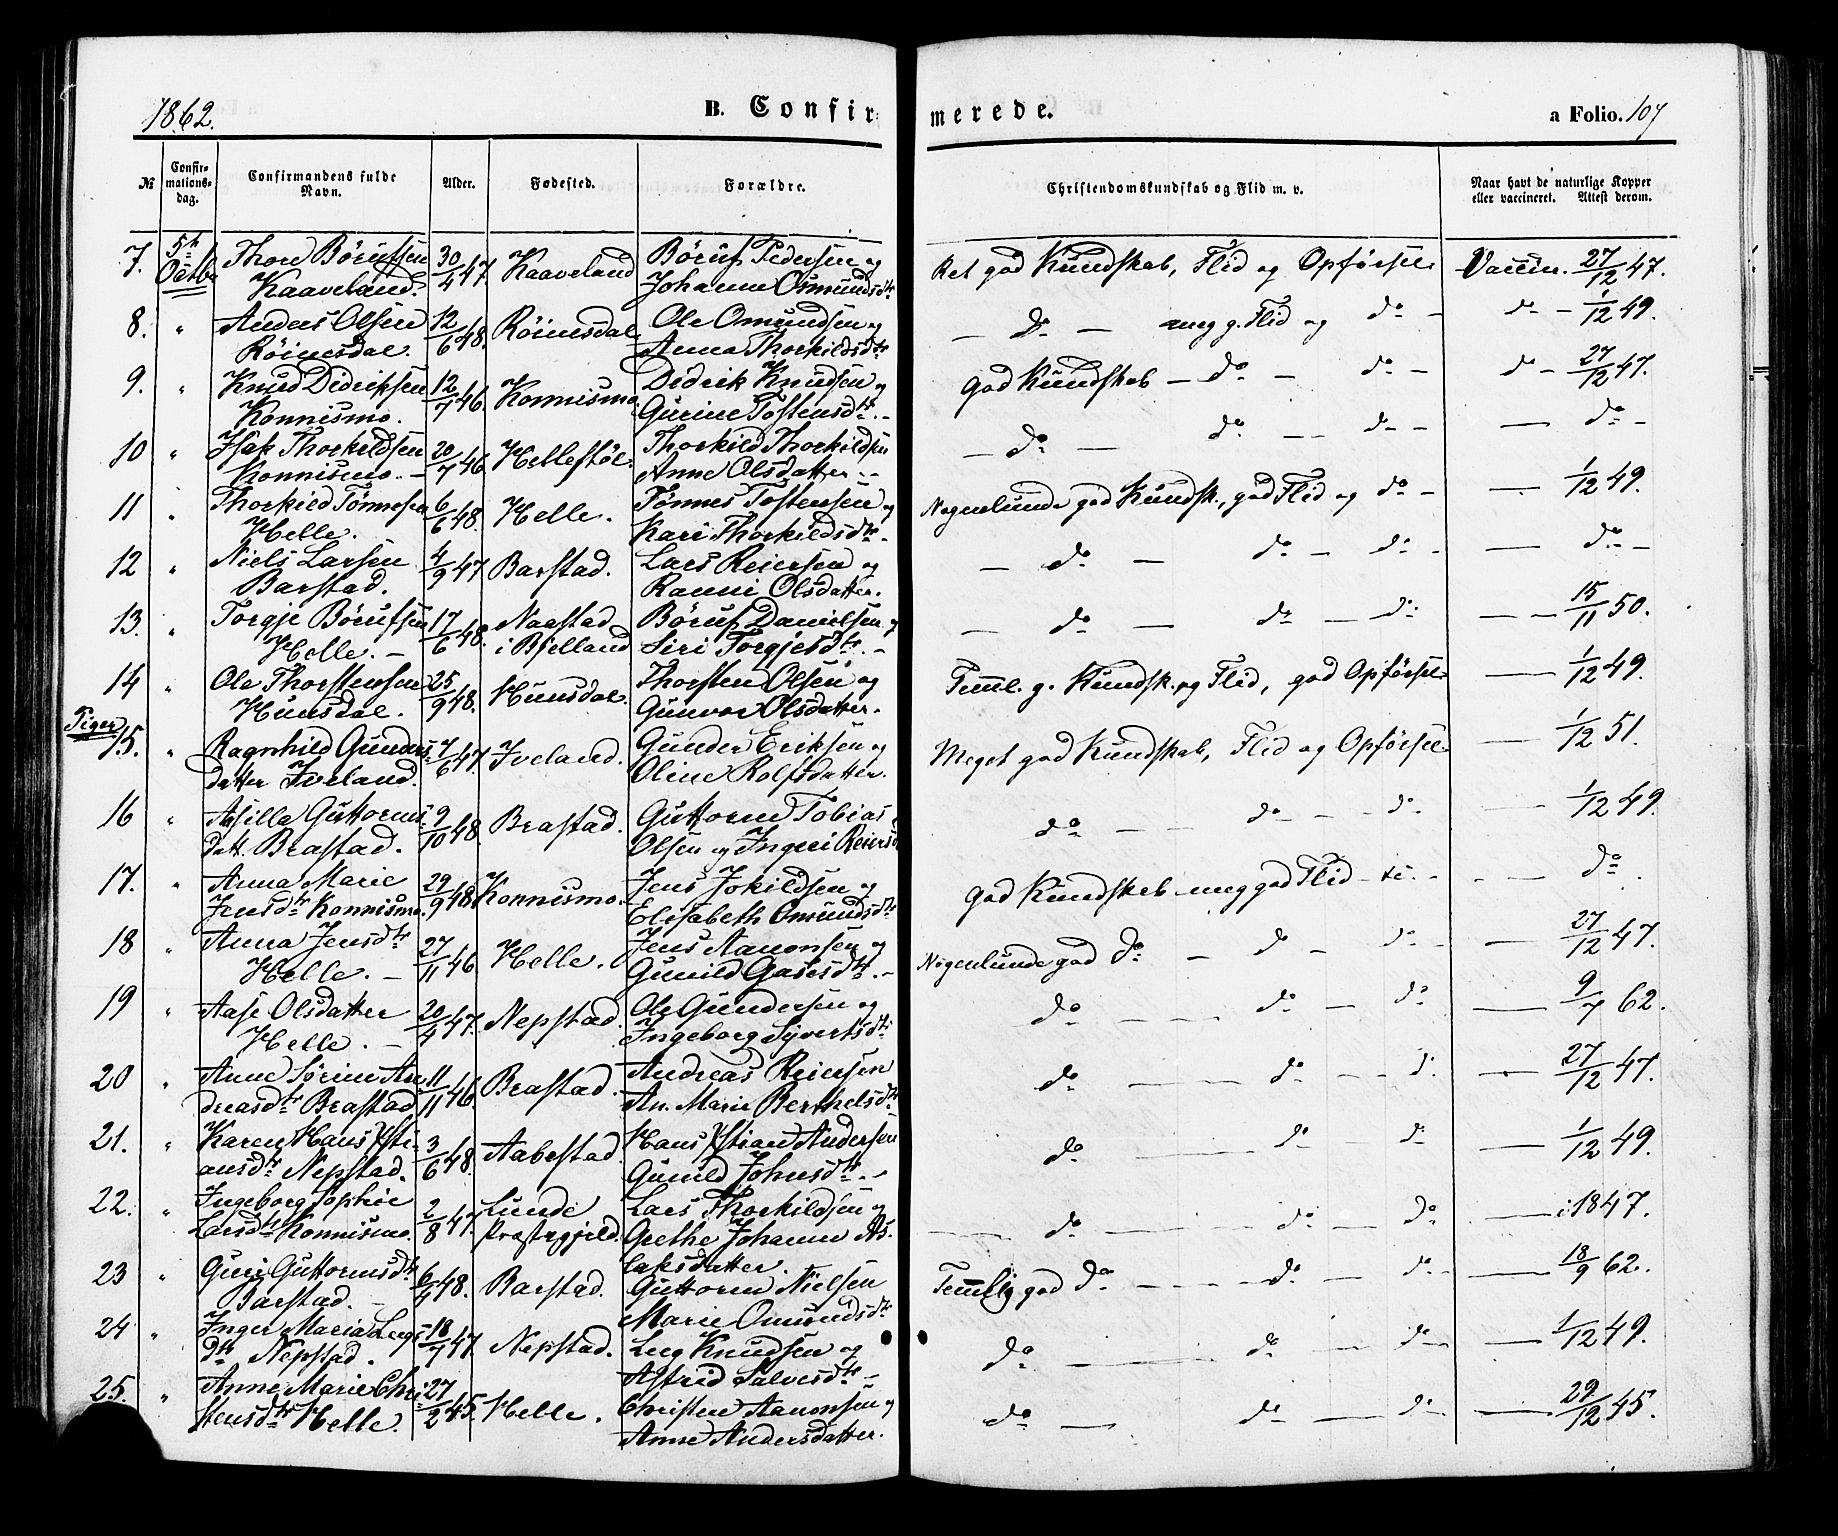 1862.
B. Confir-
merede.
a Folio. 107
№
Confir-
mations-
dag.
Confirmandens fulde
Navn.
Alder.
Fødested.
Forældre.
Christendomskundskab og Flid m. v.
Naar havt de naturlige Kopper
eller vaccineret. Attest derom.
7. 5te Octbr Thore Børufsen Kaaveland. 30/4 47. Kaaveland Børuf Pedersen og Johanne Osmundsdtr Ret god Kundskab, Flid og Opførsel. Vaccin. 27/12 47.
8. " Anders Olsen Röinesdal. 12/6 48. Röinesdal Ole Omundsen og Anna Thorkildsdtr — do — meg g. Flid og do - do - 1/12 49.
9. " Knud Didriksen Konnismo. 12/7 46. Konnismo Didrik Knudsen og Gurine Tostensdtr. - God Kundskab - do - do - do - 27/12 47.
10 " Isak Thorkildsen Konnismo. - 20/7 46 Hellestöl. Thorkild Thorkildsen Anne Olsdatter. - - do - do - - do - - — do -
11 " Thorkild Tönnesen Helle. 6/6 48. Helle. Tönnes Tostensen og Kari Thorkildsdtr. Nogenlunde god Kundsk., god Flid og do - — 1/12 49.
12 " Niels Larsen Barstad. 4/9 47 Barstad. Lars Reiersen og Ranni Olsdatter. - do - do - do - — do -
13. " Torgje Børufsen Helle. - 17/6 48. Naastad i Bjelland Børuf Danielsen og Siri Torgjesdtr. - - do - do - do - — 15/11 50.
14 " Ole Thorstensen Hunsdal. 25/9 48. Hunsdal. Thorsten Olsen og Gunvor Olsdatter. Temml. g. Kundsk. og Flid, god Opførsel — 1/12 49.
Piger
15. " Ragnhild Gunders- datter Iveland. 7/6 47. Iveland. Gunder Eriksen og Oline Rolfsdatter. Meget god Kundskab, Flid og Opførsel — 1/12 51.
16 " Asille Guttorms- datt. Brastad. 9/10 48. Brastad. Guttorm Tobias Olsen og Ingeri do - - do - - do - — 1/12 49.
17. " Anna Marie Jensdtr Konnismo. 29/9 48 Konnismo. Jens Jokildsen og Elisabeth Omundsdtr God Kundskab meg god Flid - - - do
18 " Anna Jensdtr Helle. - 27/11 46 Helle. Jens Aanonsen og Gunild Gasesdtr. - Nogenlunde god do - do - do - — 27/12 47.
19 " Aase Olsdatter Helle. - 20/4 47. Nepstad. Ole Gundersen og Ingeborg Syvertsdtr do - do - do - — 9/7 62.
20 " Anne Sörine An- dreasdtr Brastad 11/11 46. Brastad. Andreas Reiersen An. Marie Berthelsdtr do - - do - - do - — 27/12 47.
21. " Karen Hans Xsti- ansdtr Nepstad. 3/6 48. Aabestad. Hans Xstian Andersen Gunild Johnsdtr. - do - - do do - — 1/12 49.
22. " Ingeborg Sophie Larsdtr Konnismo. 2/8 47. Lunde Præstegjeld. Lars Thorkildsen og Grethe Johanne As- laksdatter. do - - do - do - — i 1847.
23 " Guri Guttormsdtr Barstad. - 6/4 48. Barstad. Guttorm Nielsen Marie Omundsdtr Temmelig god do - - do - do - — 18/9 62.
24 " Inger Maria Leegs- dtr Nepstad. 18/7 47. Nepstad. Leeg Knudsen og Astrid Salvesdtr - do - do - do - — 1/12 49.
25. " Anne Marie Chri- stensdtr Helle. 27/2 45. Helle. Christen Aanonsen og Anne Andersdatter. do - do - do - — 29/12 45.